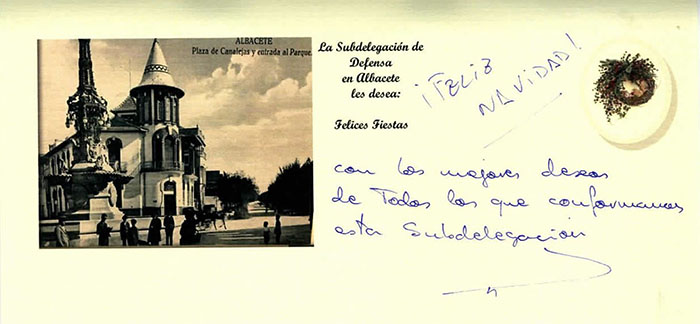 ALBACETE
Plaza de Canalejas y entrada al Parque.
La Subdelegación de
Defensa
en Albacete
les desea:
Felices Fiestas
¡FELIZ
NAVIDAD!
con los mejores deseos
de Todos los que conformamos
esta Subdelegación